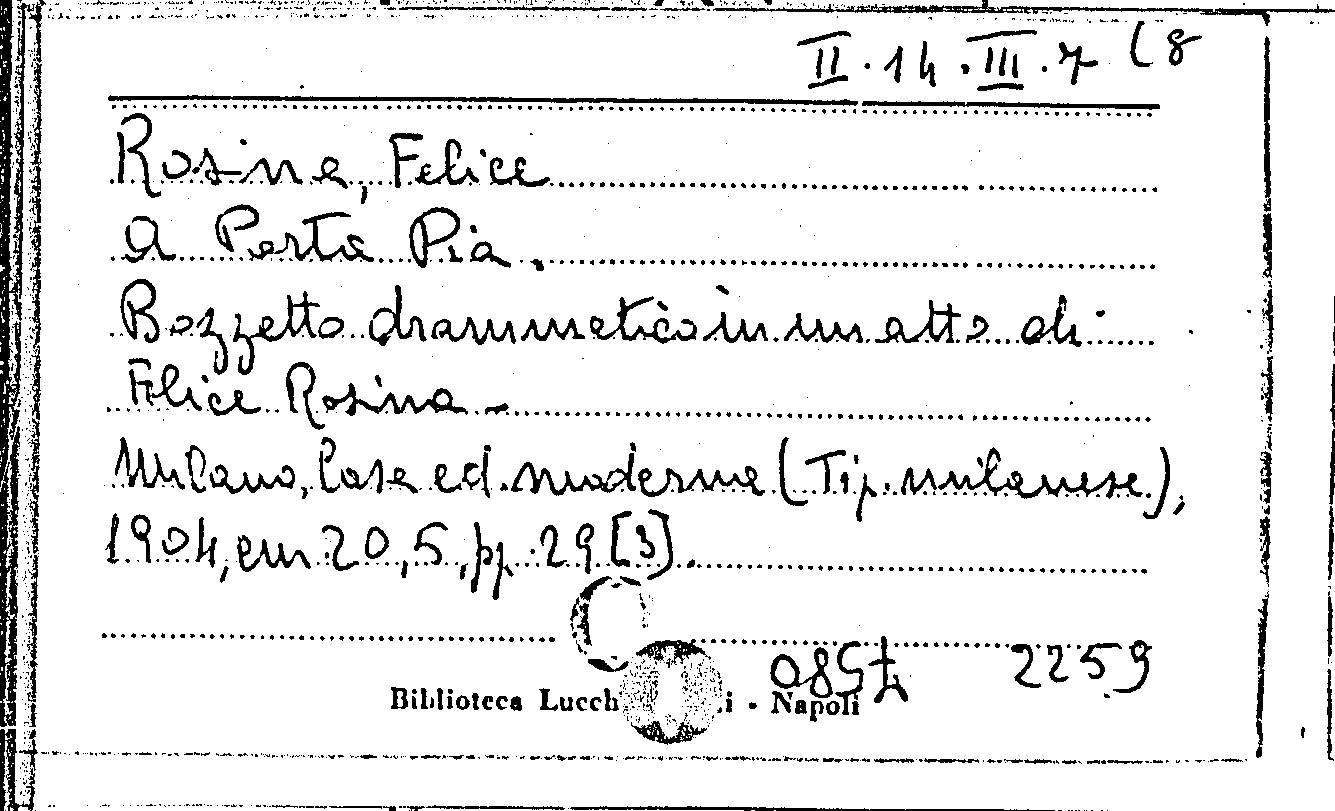 II.14.III.7 (8
Rosina, Felice
A Porta Pia.
Bozzetto drammatico in un atto di
Felice Rosina -
Milano, Casa ed. moderna (Tip. milanese),
1904, cm 20,5, pp. 29 [3].
2259
Biblioteca Lucch i - Napoli